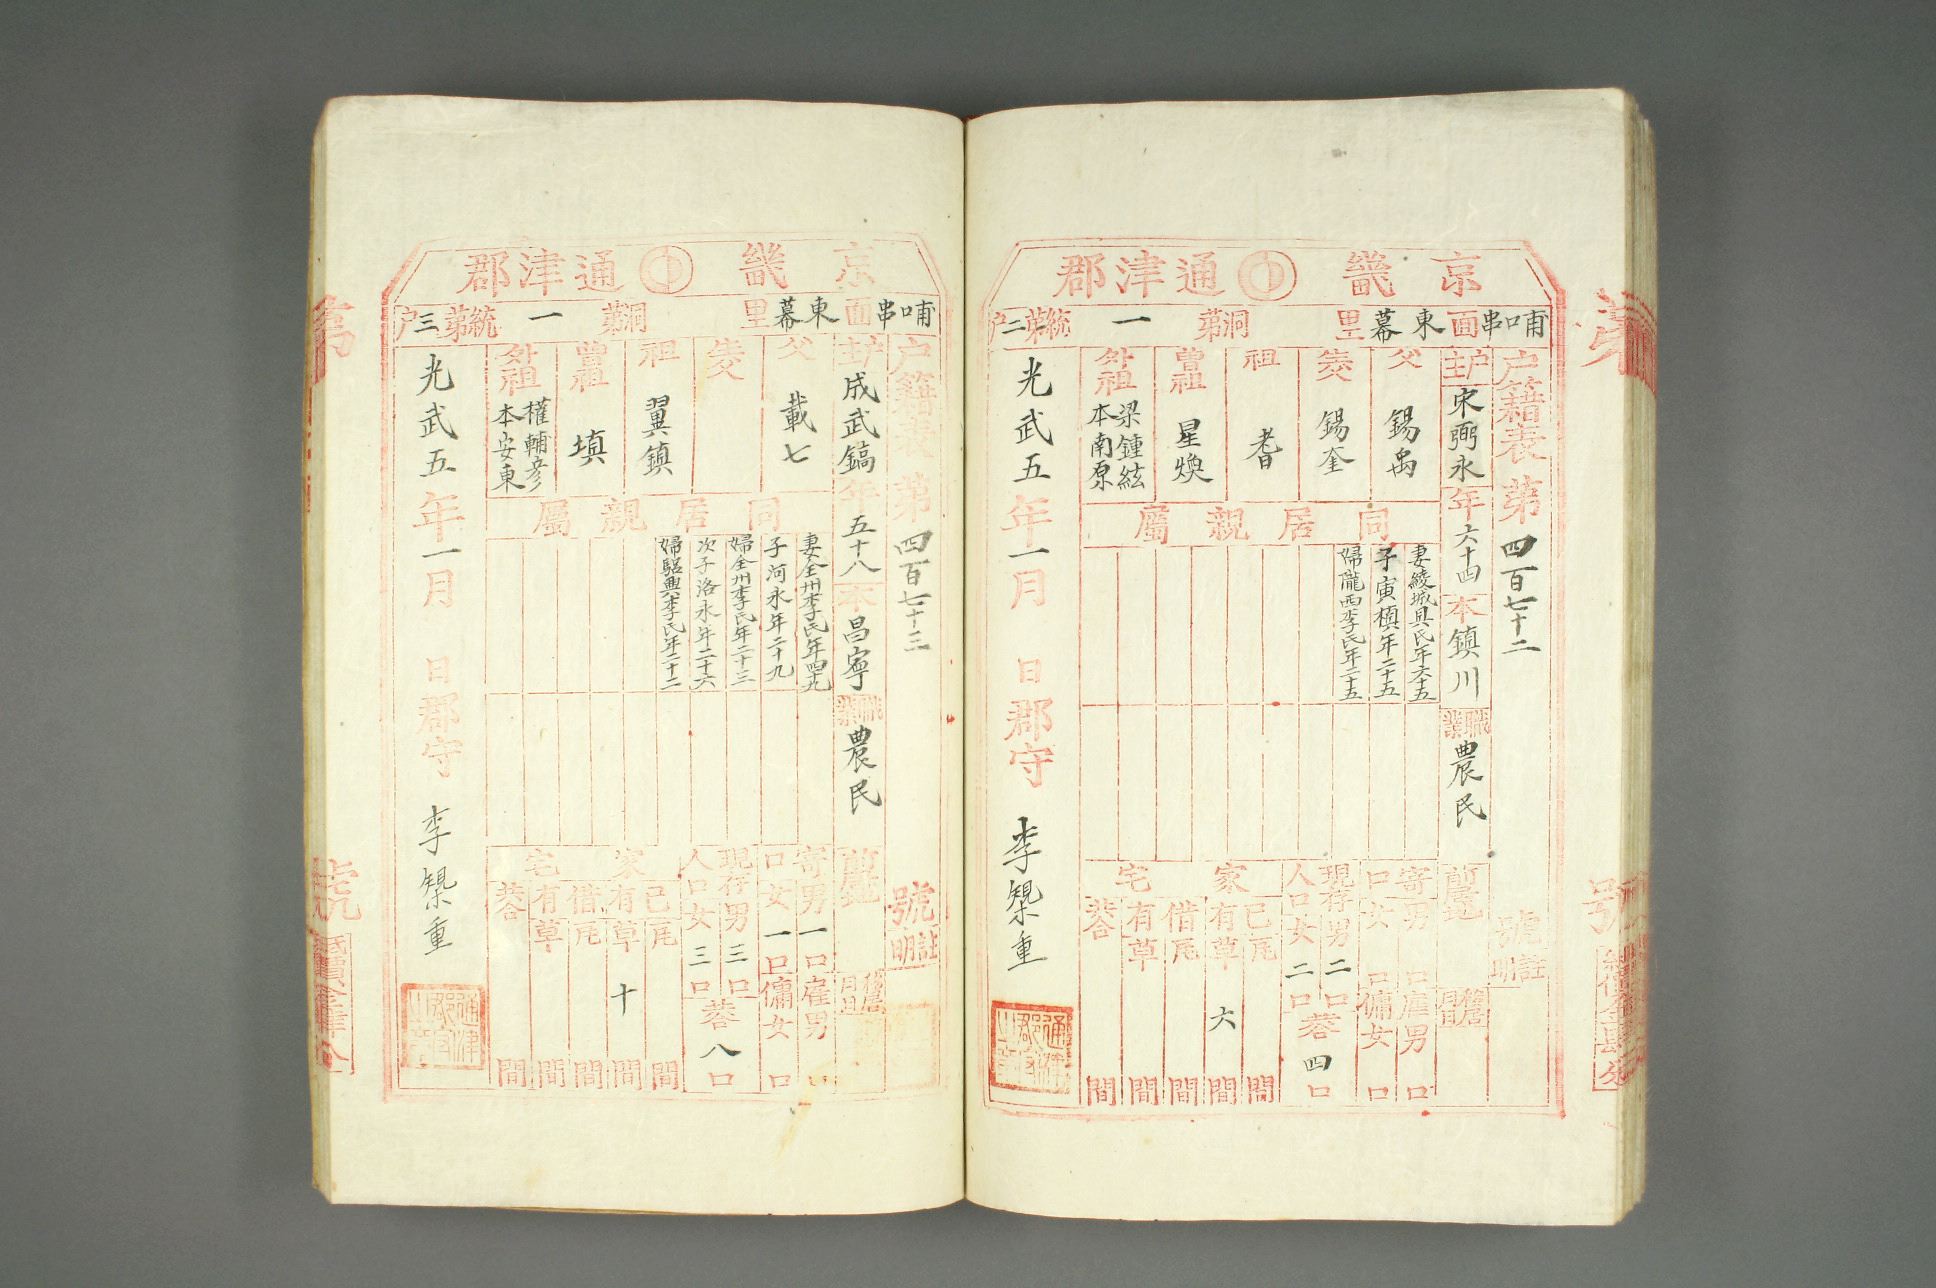 京畿 通津郡
哺口串面東幕里 洞第一 統第二户
户籍表第四百七十二號
註明
户主 宋弼永 年六十四 本鎮川 職業 農民 前籍 移居月日
父 錫禹
生父 錫奎
祖 耆
曾祖 星煥
外祖 梁鍾鉉 本南原
同居親屬
妻綾城具氏年六十五
子寅植年二十五
婦隴西李氏年二十五
寄口 男 口 女 口
雇男 口 傭女 口
現存人口 男二口 女二口
共四口
家宅
己有 瓦 間 草六間
借有 瓦 間 草 間
共 間
光武五年一月 日郡守 李㮚重
通津郡守之章
京畿 通津郡
哺口串面東幕里 洞第一 統第三户
户籍表第四百七十三號
註明
户主 成武鎬 年五十八 本昌寧 職業 農民 前籍 移居月日
父 載七
生父
祖 翼鎮
曾祖 塡
外祖 權輔彦 本安東
同居親屬
妻全州李氏年四十九
子河永年二十九
婦全州李氏年二十三
次子洛永年二十六
婦驪興李氏年二十二
寄口 男一口 女一口
雇男 口 傭女 口
現存人口 男三口 女三口
共八口
家宅
己有 瓦 間 草十間
借有 瓦 間 草 間
共 間
光武五年一月 日郡守 李㮚重
通津郡守之章